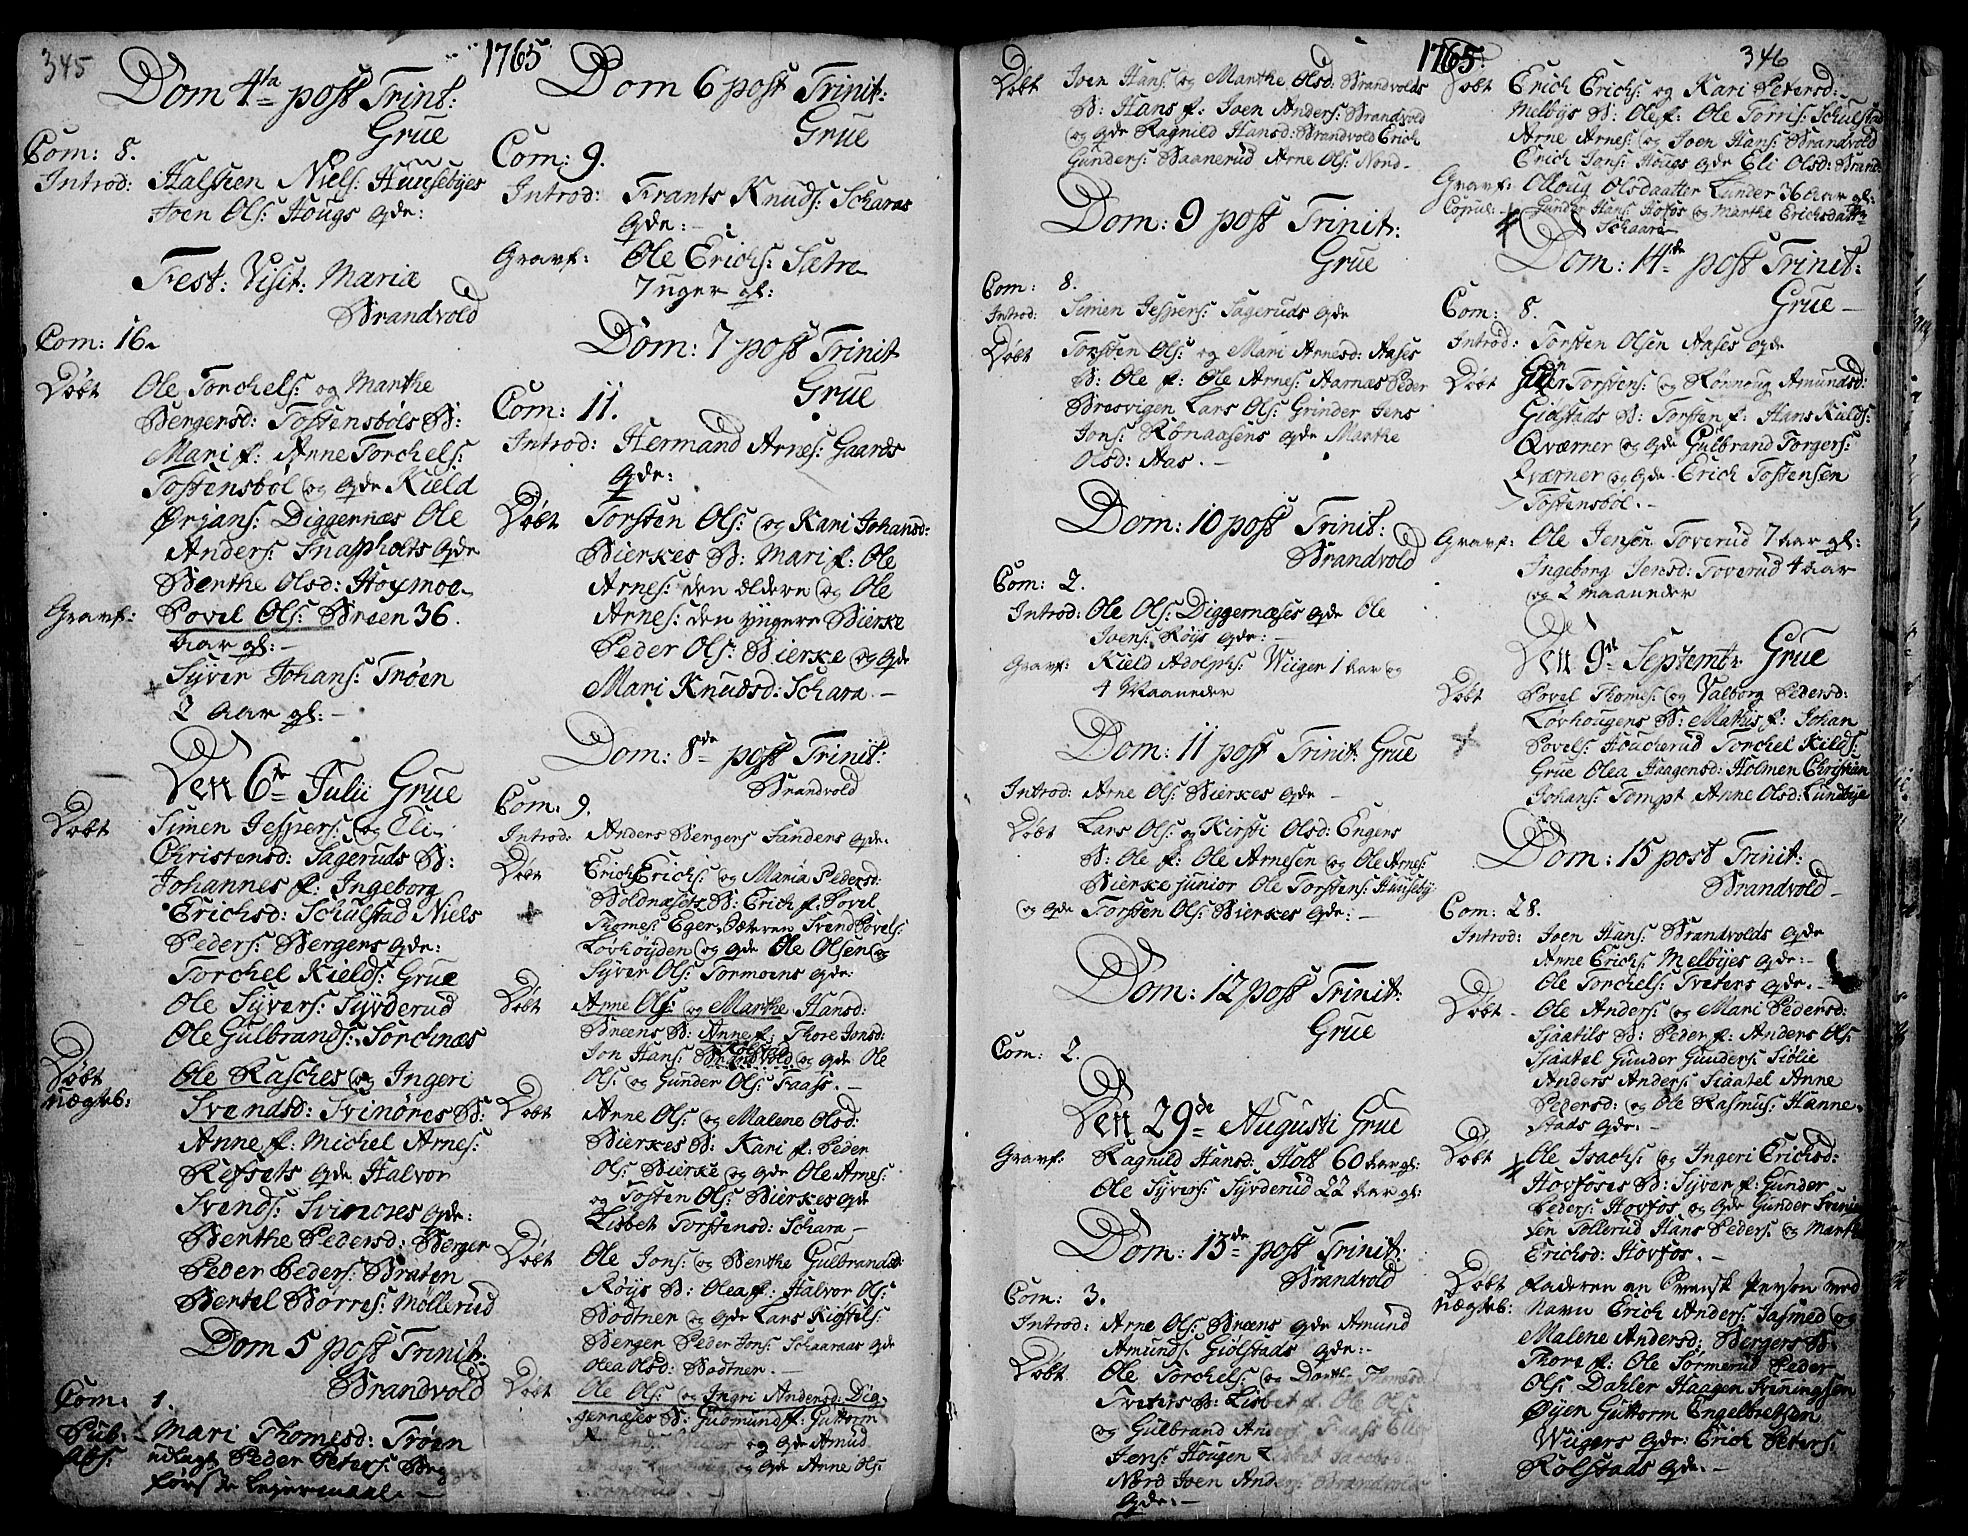 345
1765
Dom 4ta post Trinit:
Grue
Com: 8.
Introd: Halsten Niels: Huusebyes
Joen Ols: Hougs qde:
Fest: Visit: Mariæ
Brandvold
Com: 16.
Döbt Ole Torchels: og Marthe
Bergersd: Tostensböls B:
Mari f: Arne Torchels:
Tostensböl og qde Kield
Ørjans: Diggernæs Ole
Anders: Snapholts qde
Berthe Olsd: Höymoe
Gravf: Povel Ols: Breen 36.
aar gl: -
Syver Johans: Tröen
2 aar gl: -
Den 6te Julii Grue
Döbt Simen Jespers: og Eli
Christensd: Sageruds B:
Johannes f: Ingeborg
Erichsd: Schulstad Niels
Peders: Bergers qde:
Torchel Kields: Grue
Ole Syvers: Syverud
Ole Gulbrands: Sorchnæs
Döbt Ole Rasches og Ingeri
uægteb: Svendsd: Svinöres B:
Anne f: Michel Arnes:
Refsets qde Halvor
Svends: Svinöres qde:
Berthe Pedersd: Berger
Peder Peders: Braten
Bertel Börres: Möllerud
Dom 5 post Trinit:
Brandvold
Com: 1.
Pub: Mari Thomesd: Tröen
Abs: udlagt Peder Peters:
förste Lejermaal. -
Dom 6 post Trinit:
Grue
Com: 9.
Introd: Frants Knuds: Scharas
qde: -
Gravf: Ole Erichs: Sætre
7 uger gl:
Dom: 7 post Trinit
Grue
Com: 11.
Introd: Hermand Arnes: Gaards
qde:
Döbt Torsten Ols: og Kari Johansd:
Bierkes B: Mari f: Ole
Arnes: den ældere og Ole
Arnes: den yngere Bierke
Peder Ols: Bierke og qde
Mari Knudsd: Schara. -
Dom: 8de post Trinit:
Brandvold
Com: 9.
Introd: Anders Bergers Sanders qde.
Döbt Erich Erichs: og Maria Pedersd:
Boldnæsets B: Erich f: Povel
Thomes: Eger Sæteren Svend Povels:
Lövhöyden og qde Ole Olsen og
Syver Ols: Tormoens qde:
Döbt Arne Ols: og Marthe Hansd:
Breens B: Anne f: Thore Jonsd:
Jon Hans: Brandvold og qde Ole
Ols: og Gunder Ols: Faass. -
Döbt Arne Ols: og Malene Olsd:
Bierkes B: Kari f: Peder
Ols: Bierke og qde Ole Arnes:
og Tosten Ols: Bierkes qde
Lisbet Torstensd: Schara -
Döbt Ole Jons: og Berthe Gulbrandsd:
Röys B: Olea f: Halvor Ols:
Bodtner og qde Lars Kiöstils:
Berger Peder Jons: Schaaraas qde
Olea Olsd: Bodtner. -
Döbt Ole Ols: og Ingri Andersd: Dig-
gernæses B: Gudmund f: Guttorm
og qde Amud
og qde Anne Ols:
1765
346
Döbt Joen Hans: og Marthe Olsd: Brandvolds
B: Hans f: Joen Anders: Brandvold
og qde Ragnild Hansd: Brandvold Erich
Gunders: Baanerud Arne Ols: Nord-
Dom: 9 post Trinit:
Grue
Com: 8.
Introd: Simen Jespers: Sageruds qde
Döbt Torsten Ols: og Mari Arnesd: Aases
B: Ole f: Ole Arnes: Aarnæs Peder
Bresvigen Lars Ols: Grinder Jens
Jons: Rönaasens qde Marthe
Olsd: Aas. -
Dom: 10 post Trinit:
Brandvold
Com: 2.
Introd: Ole Ols: Diggernæses qde Ole
Joens: Röys qde: -
Gravf: Kield Adolphs: Wiiger 1 aar og
4 Maaneder
Dom: 11 post Trinit: Grue
Introd: Arne Ols: Bierkes qde -
Döbt Lars Ols: og Kirsti Olsd: Engers
B: Ole f: Ole Arnesen og Ole Arnes:
Bierke junior Ole Torstens: Huuseby
og qde Torsten Ols: Bierkes qde: -
Dom: 12 post Trinit:
Grue
Com: 2.
Den 29de Augusti Grue
Gravf: Ragnild Hansd: Holt 60 aar gl:
Ole Syvers: Syverud 22 aar gl:
Dom: 13de post Trinit:
Brandvold
Com: 3.
Introd: Arne Ols: Breens qde Amund
Amunds: Giölstads qde: -
Döbt Ole Torchels: og Dorthe Thomesd:
Tveters B: Lisbet f: Ole Ols:
og Gulbrand Anders: Faass Eller
Jens: Hougen Lisbet Jacobsd:
Nord Joen Anders: Brandvolds
qde: -
Döbt Erich Erichs: og Kari Petersd:
Melbys B: Ole f: Ole Torris: Schulstad
Arne Arnes: og Joen Hans: Brandvold
Erich Jons: Hougs qde Eli Olsd: Brand-
Gravf: Olloug Olsdaatter Lunder 36 aar gl:
Copul: Gunder Hans: Hovfos og Marthe Erichsdattr
Schaara
Dom: 14de post Trinit:
Grue -
Com: 8.
Introd: Torsten Olsen Aases qde
Döbt Torstens: og Rönnoug Amundsd:
Giölstads B: Torsten f: Hans Kields:
Qværner og qde Gulbrand Torgers:
Qværner og qde Erich Tostensen
Tostensböl. -
Gravf: Ole Jensen Toverud 7 aar gl:
Ingeborg Jensd: Toverud 4 aar
og 2 maaneder
Den 9de Septembr Grue
Döbt Povel Thomes: og Valborg Pedersd:
Lövhougens B: Mathis f: Johan
Povels: Houcherud Torchel Kields:
Grue Olea Haagensd: Holmen Christian
Johans: Tompt Anne Olsd: Lundbye
Dom: 15 post Trinit:
Brandvold -
Com: 28.
Introd: Joen Hans: Brandvolds qde
Arne Erichs: Melbyes qde: -
Ole Torchels: Tveters qde. -
Döbt - Ole Anders: og Mari Pedersd:
Sjaatils B: Peder f: Anders Ols:
Sjaatel Gunder Gunders: Siölie
Anders Anders: Sjaatel Anne
Pedersd: og Ole Rasmus: Hanne-
stads qde: -
Döbt Ole Isachs: og Ingeri Erichsd:
Hovfoses B: Syver f: Gunder
Peders: Hovfos og qde Gunder
sen Tollerud Hans Peders: og Marthe
Erichsd: Hovfos. -
Döbt Faderen en Svensk Person ved
uægteb: Navn Erich Anders: Jasmed og
Malene Andersd: Bergers B:
Thore f: Ole Sormerud Peder
Ols: Dahler Haagen Svenningsen
Øyen Guttorm Engelbretsen
Wiigers qde: Erich Peters:
Kolstads qde. -